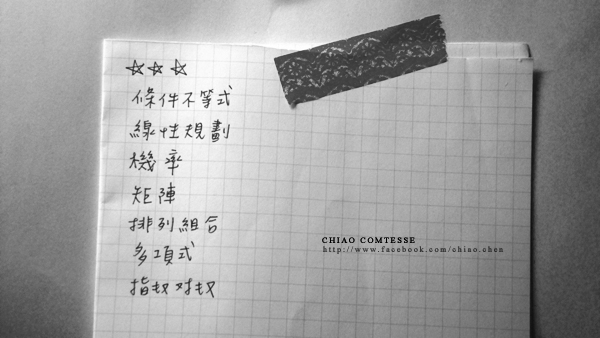 ☆☆☆
條件不等式
線性規劃
機率
矩陣
排列組合
多項式
指杁对杁
CHIAO COMTESSE
http://www.facebook.com/chiao.chen